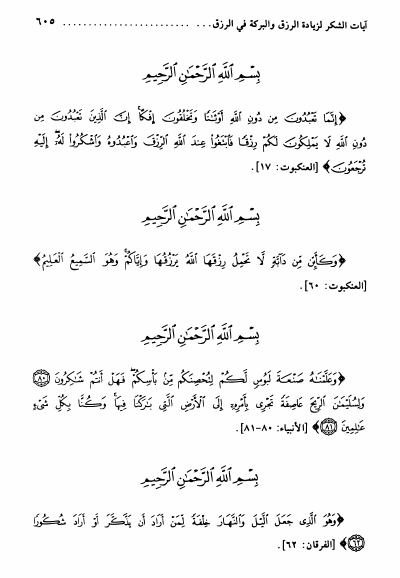 آيات الشكر لزيادة الرزق والبركة في الرزق... ........................... ٦٠٥
بِسْمِ اللَّهِ الرَّحْمَٰنِ الرَّحِيمِ
﴿إِنَّمَا تَعْبُدُونَ مِن دُونِ اللَّهِ أَوْثَٰنًا وَتَخْلُقُونَ إِفْكًا ۚ إِنَّ الَّذِينَ تَعْبُدُونَ مِن
دُونِ اللَّهِ لَا يَمْلِكُونَ لَكُمْ رِزْقًا فَابْتَغُوا۟ عِندَ اللَّهِ الرِّزْقَ وَاعْبُدُوهُ وَاشْكُرُوا۟ لَهُۥٓ ۖ إِلَيْهِ
تُرْجَعُونَ﴾ [العنكبوت: ١٧].
بِسْمِ اللَّهِ الرَّحْمَٰنِ الرَّحِيمِ
﴿وَكَأَيِّن مِّن دَآبَّةٍ لَّا تَحْمِلُ رِزْقَهَا اللَّهُ يَرْزُقُهَا وَإِيَّاكُمْ ۚ وَهُوَ السَّمِيعُ الْعَلِيمُ﴾
[العنكبوت: ٦٠].
بِسْمِ اللَّهِ الرَّحْمَٰنِ الرَّحِيمِ
﴿وَعَلَّمْنَٰهُ صَنْعَةَ لَبُوسٍ لَّكُمْ لِتُحْصِنَكُم مِّنۢ بَأْسِكُمْ ۖ فَهَلْ أَنتُمْ شَٰكِرُونَ ﴿٨٠﴾
وَلِسُلَيْمَٰنَ الرِّيحَ عَاصِفَةً تَجْرِى بِأَمْرِهِۦٓ إِلَى الْأَرْضِ الَّتِى بَٰرَكْنَا فِيهَا ۚ وَكُنَّا بِكُلِّ شَىْءٍ
عَٰلِمِينَ ﴿٨١﴾﴾ [الأنبياء: ٨٠-٨١].
بِسْمِ اللَّهِ الرَّحْمَٰنِ الرَّحِيمِ
﴿وَهُوَ الَّذِى جَعَلَ الَّيْلَ وَالنَّهَارَ خِلْفَةً لِّمَنْ أَرَادَ أَن يَذَّكَّرَ أَوْ أَرَادَ شُكُورًا
﴿٦٢﴾﴾ [الفرقان: ٦٢].